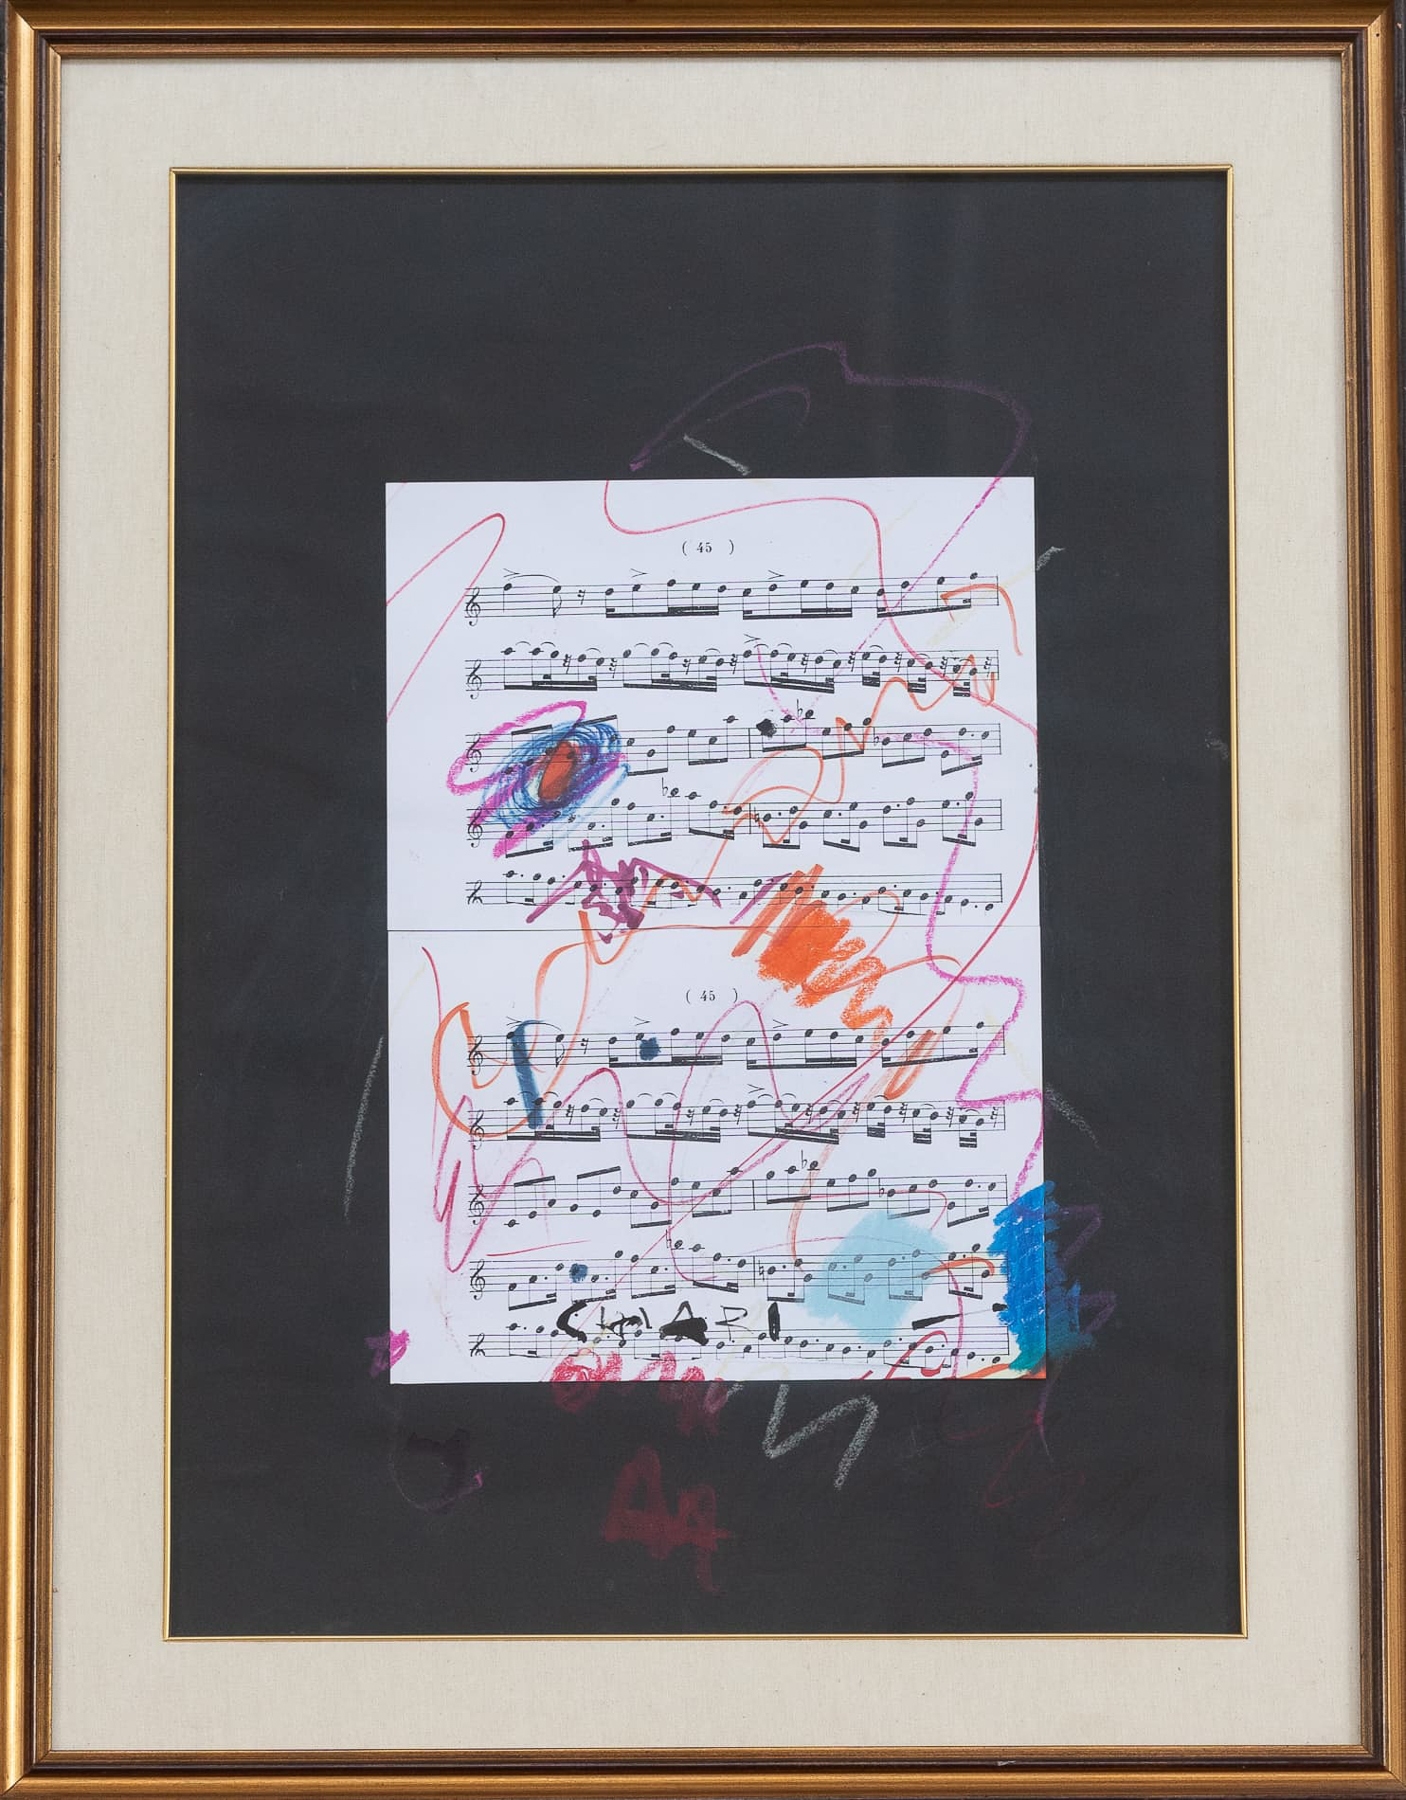 ( 45 )
( 45 )
CHIARI